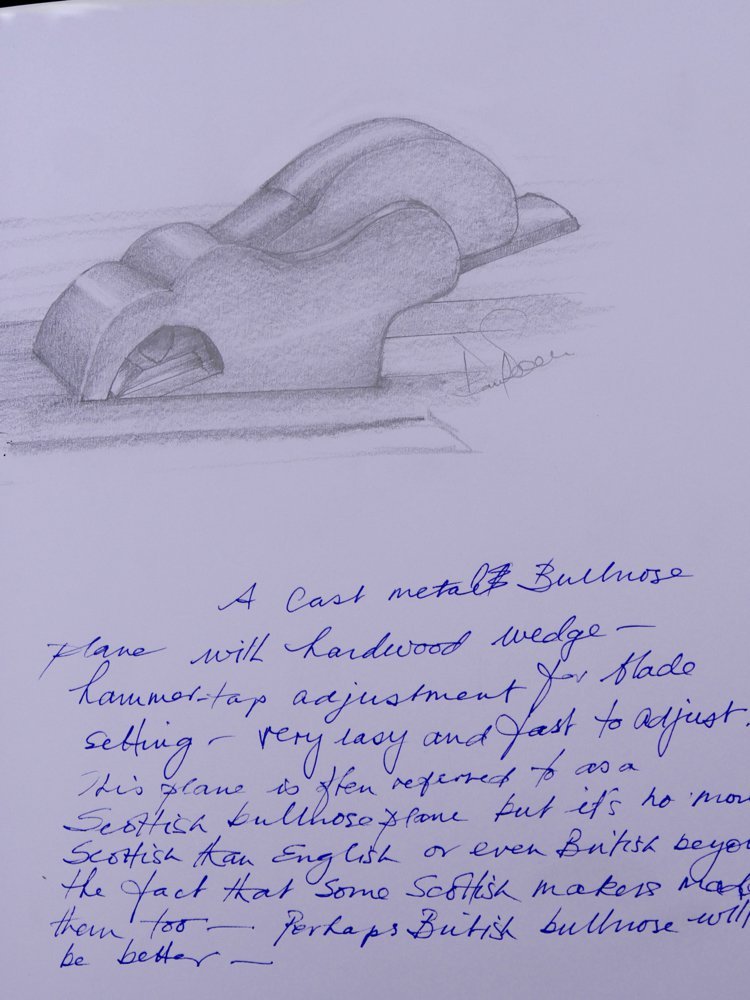 A cast metal Bullnose
plane with hardwood wedge —
hammer-tap adjustment for blade
setting — very easy and fast to adjust.
This plane is often referred to as a
Scottish bullnose plane but it's no mor
Scottish than English or even British beyo
the fact that some Scottish makers mad
them too — Perhaps British bullnose will
be better —